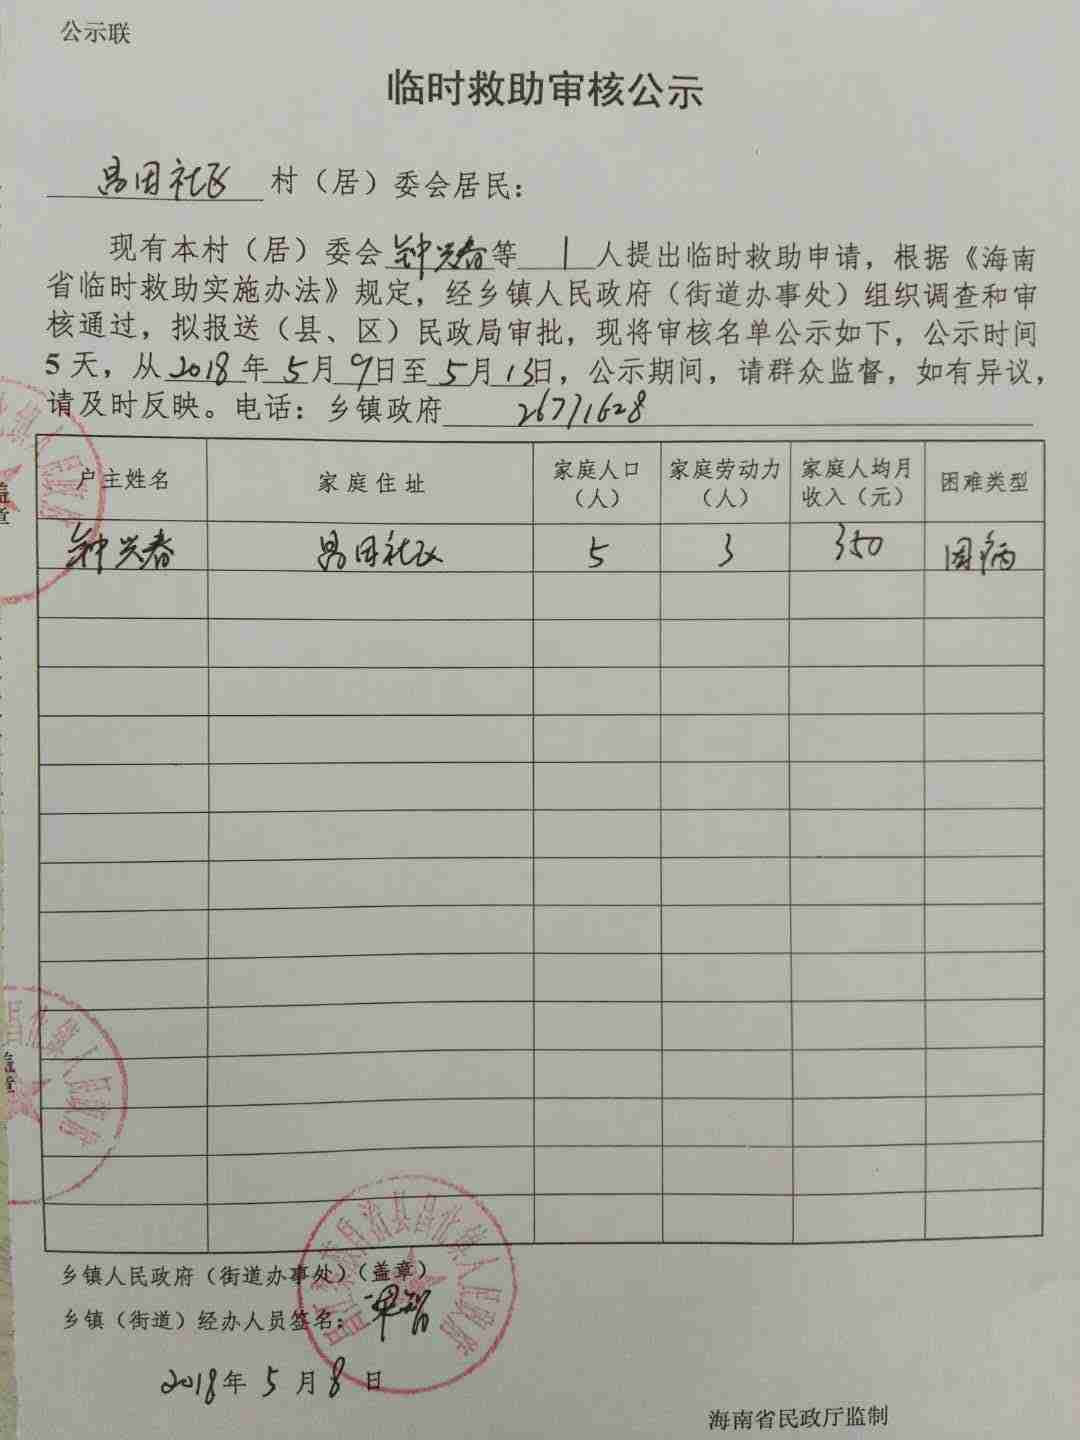 公示联
临时救助审核公示
昌田社区 村（居）委会居民：
现有本村（居）委会钟兴春等 1 人提出临时救助申请，根据《海南
省临时救助实施办法》规定，经乡镇人民政府（街道办事处）组织调查和审
核通过，拟报送（县、区）民政局审批，现将审核名单公示如下，公示时间
5天，从2018年5月9日至5月13日，公示期间，请群众监督，如有异议，
请及时反映。电话：乡镇政府 26771628
户主姓名 家庭住址 家庭人口（人） 家庭劳动力（人） 家庭人均月收入（元） 困难类型
钟兴春 昌田社区 5 3 350 因病
盖章
盖章
乡镇人民政府（街道办事处）（盖章）
乡镇（街道）经办人员签名：
2018年5月8日
海南省民政厅监制